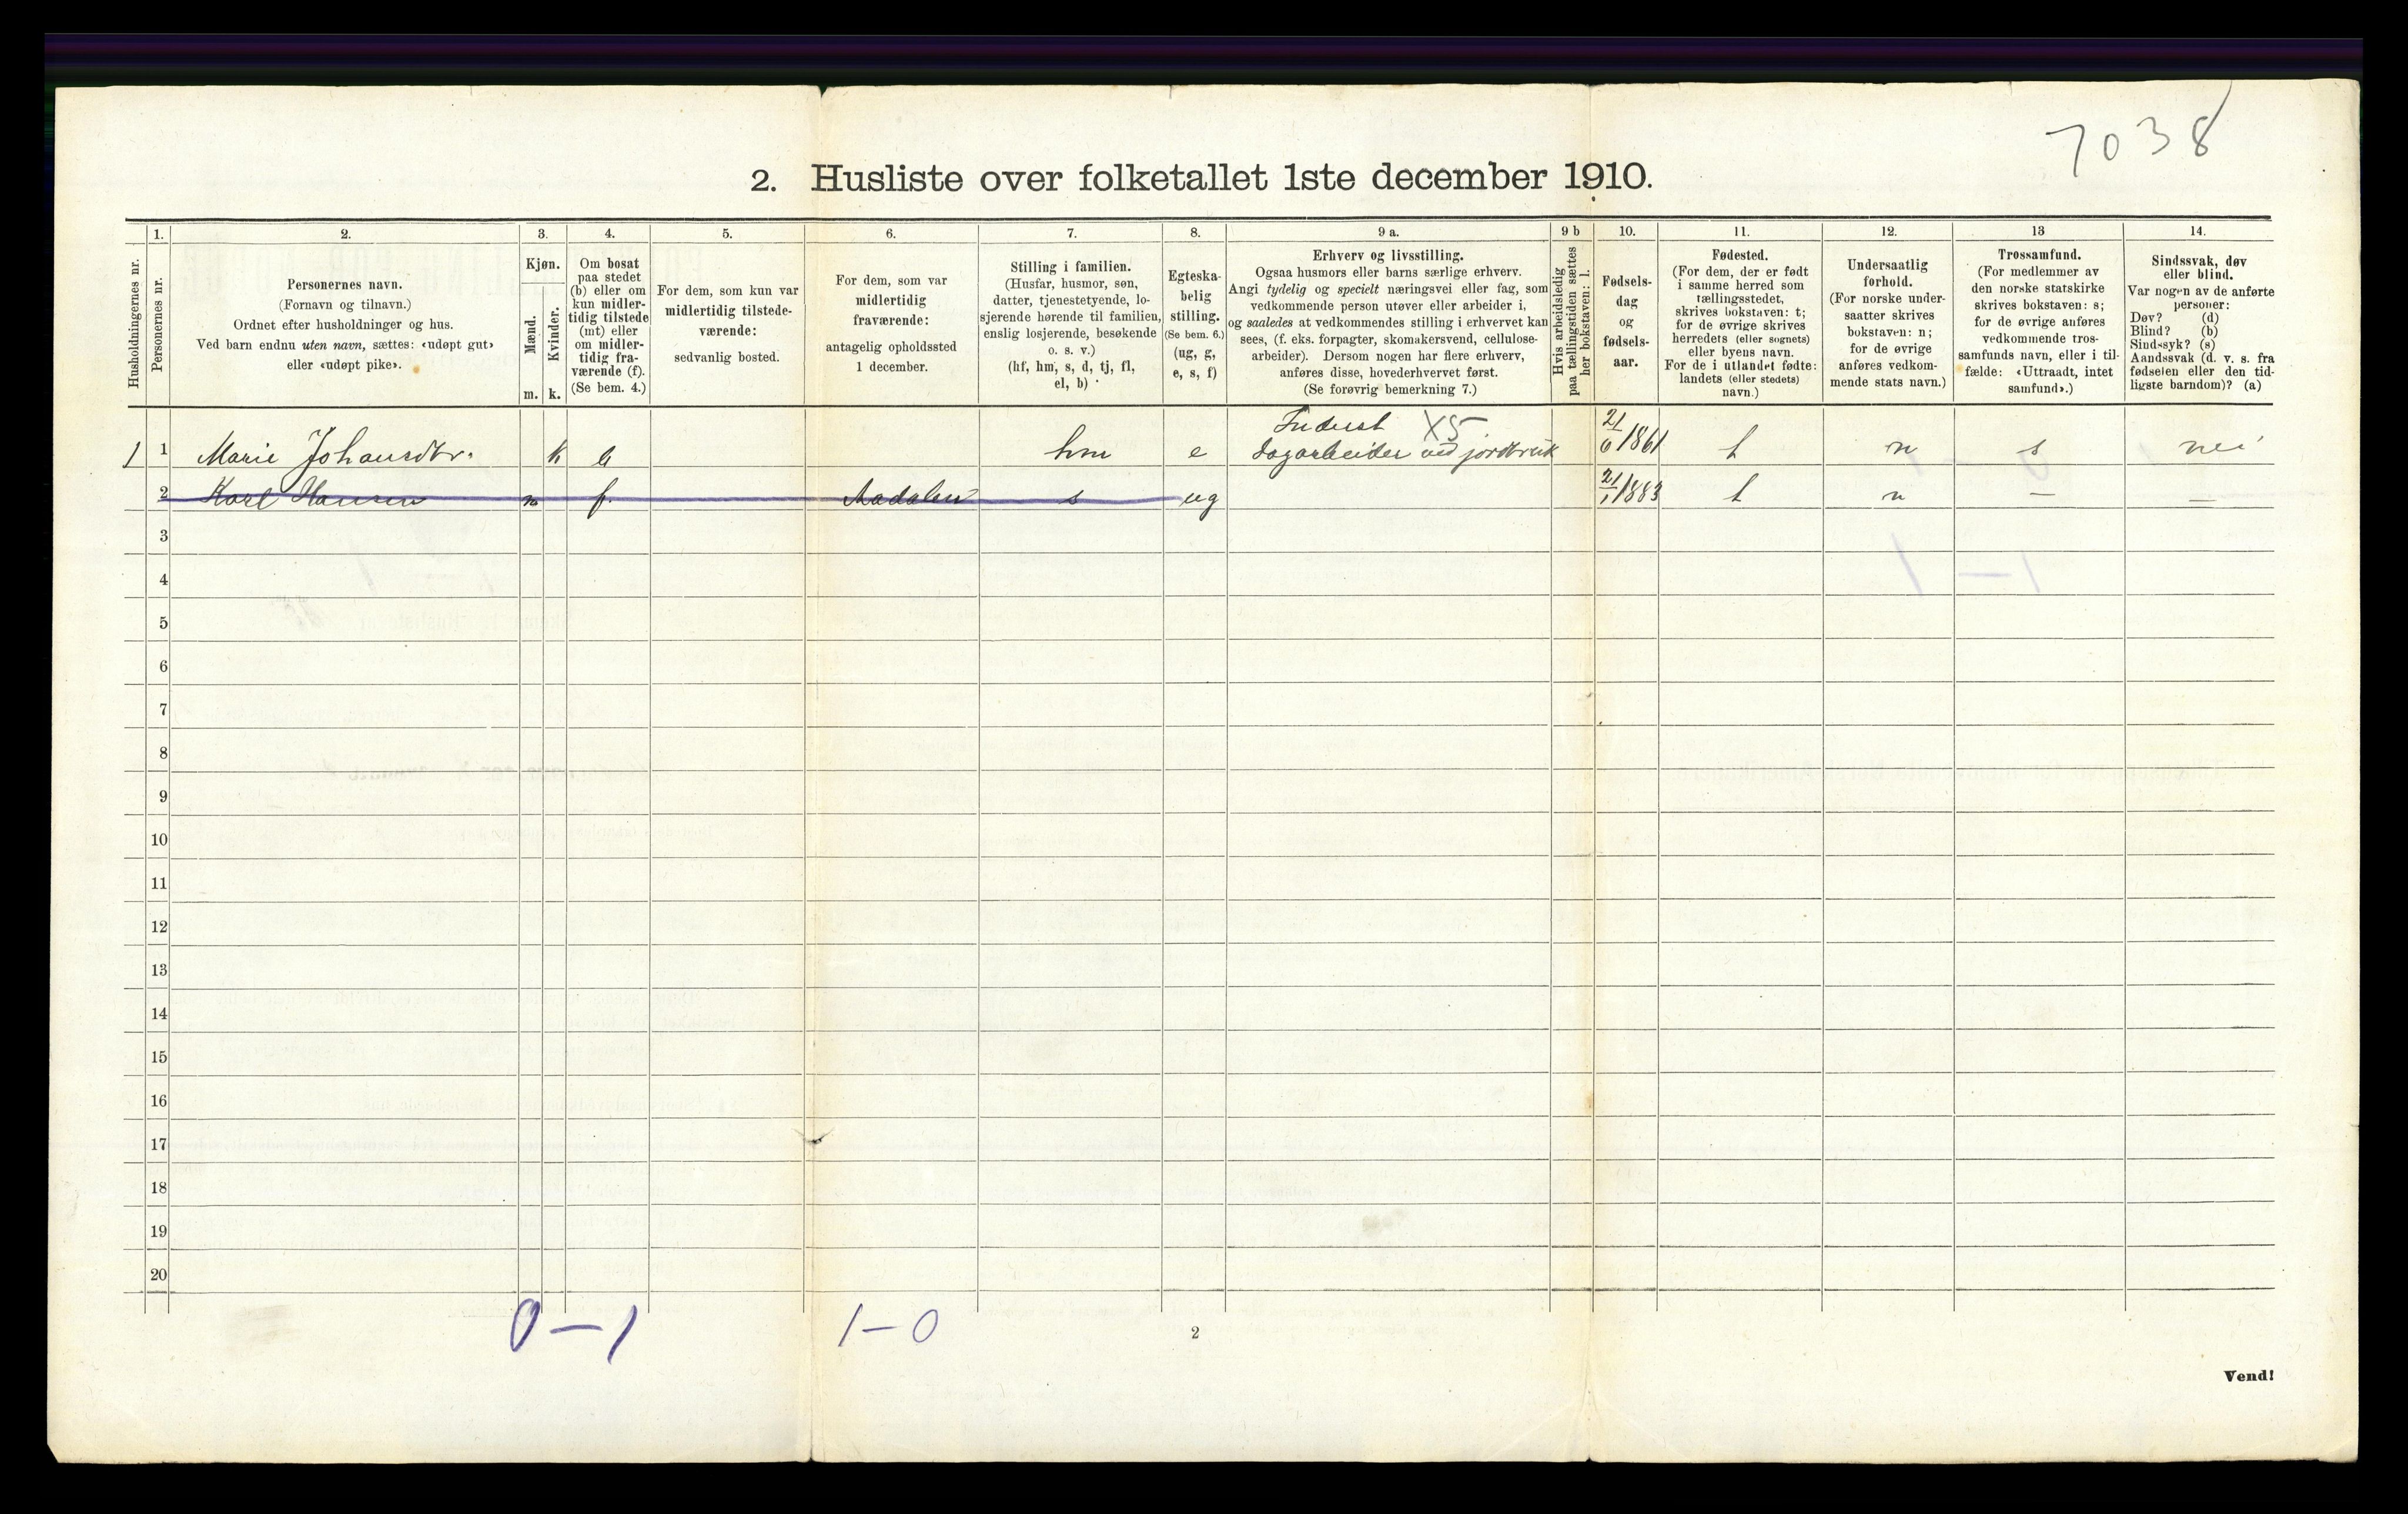 7038
2. Husliste over folketallet 1ste december 1910.
Husholdningernes nr.
1.
Personernes nr.
2.
Personernes navn.
(Fornavn og tilnavn.)
Ordnet efter husholdninger og hus.
Ved barn endnu uten navn, sættes: «udøpt gut»
eller «udøpt pike».
3.
Kjøn.
Mænd.
Kvinder.
m. k.
4.
Om bosat
paa stedet
(b) eller om
kun midler-
tidig tilstede
(mt) eller
om midler-
tidig fra-
værende (f).
(Se bem. 4.)
5.
For dem, som kun var
midlertidig tilstede-
værende:
sedvanlig bosted.
6.
For dem, som var
midlertidig
fraværende:
antagelig opholdssted
1 december.
7.
Stilling i familien.
(Husfar, husmor, søn,
datter, tjenestetyende, lo-
sjerende hørende til familien,
enslig losjerende, besøkende
o. s. v.)
(hf, hm, s, d, tj, fl,
el, b)
8.
Egteska-
belig
stilling.
(Se bem. 6.)
(ug, g,
e, s, f)
9 a.
Erhverv og livsstilling.
Ogsaa husmors eller barns særlige erhverv.
Angi tydelig og specielt næringsvei eller fag, som
vedkommende person utøver eller arbeider i,
og saaledes at vedkommendes stilling i erhvervet kan
sees, (f. eks. forpagter, skomakersvend, cellulose-
arbeider). Dersom nogen har flere erhverv,
anføres disse, hovederhvervet først.
(Se forøvrig bemerkning 7.)
9 b
Hvis arbeidsledig
paa tællingstiden sættes
her bokstaven: l.
10.
Fødsels-
dag
og
fødsels-
aar.
11.
Fødested.
(For dem, der er født
i samme herred som
tællingsstedet,
skrives bokstaven: t;
for de øvrige skrives
herredets (eller sognets)
eller byens navn.
For de i utlandet fødte:
landets (eller stedets)
navn.)
12.
Undersaatlig
forhold.
(For norske under-
saatter skrives
bokstaven: n;
for de øvrige
anføres vedkom-
mende stats navn.)
13
Trossamfund.
(For medlemmer av
den norske statskirke
skrives bokstaven: s;
for de øvrige anføres
vedkommende tros-
samfunds navn, eller i til-
fælde: «Uttraadt, intet
samfund».)
14.
Sindssvak, døv
eller blind.
Var nogen av de anførte
personer:
Døv? (d)
Blind? (b)
Sindssyk? (s)
Aandssvak (d. v. s. fra
fødselen eller den tid-
ligste barndom)? (a)
Inderst X5
1 1 Marie Johansdtr. k b hm e Dagarbeider ved jordbruk 21/6 1861 t n s nei
2 Karl Hansen m f. Aadalen s ug 21/1 1883 t n — —
3
4
5
6
7
8
9
10
11
12
13
14
15
16
17
18
19
20
0—1 1—0
2
Vend!